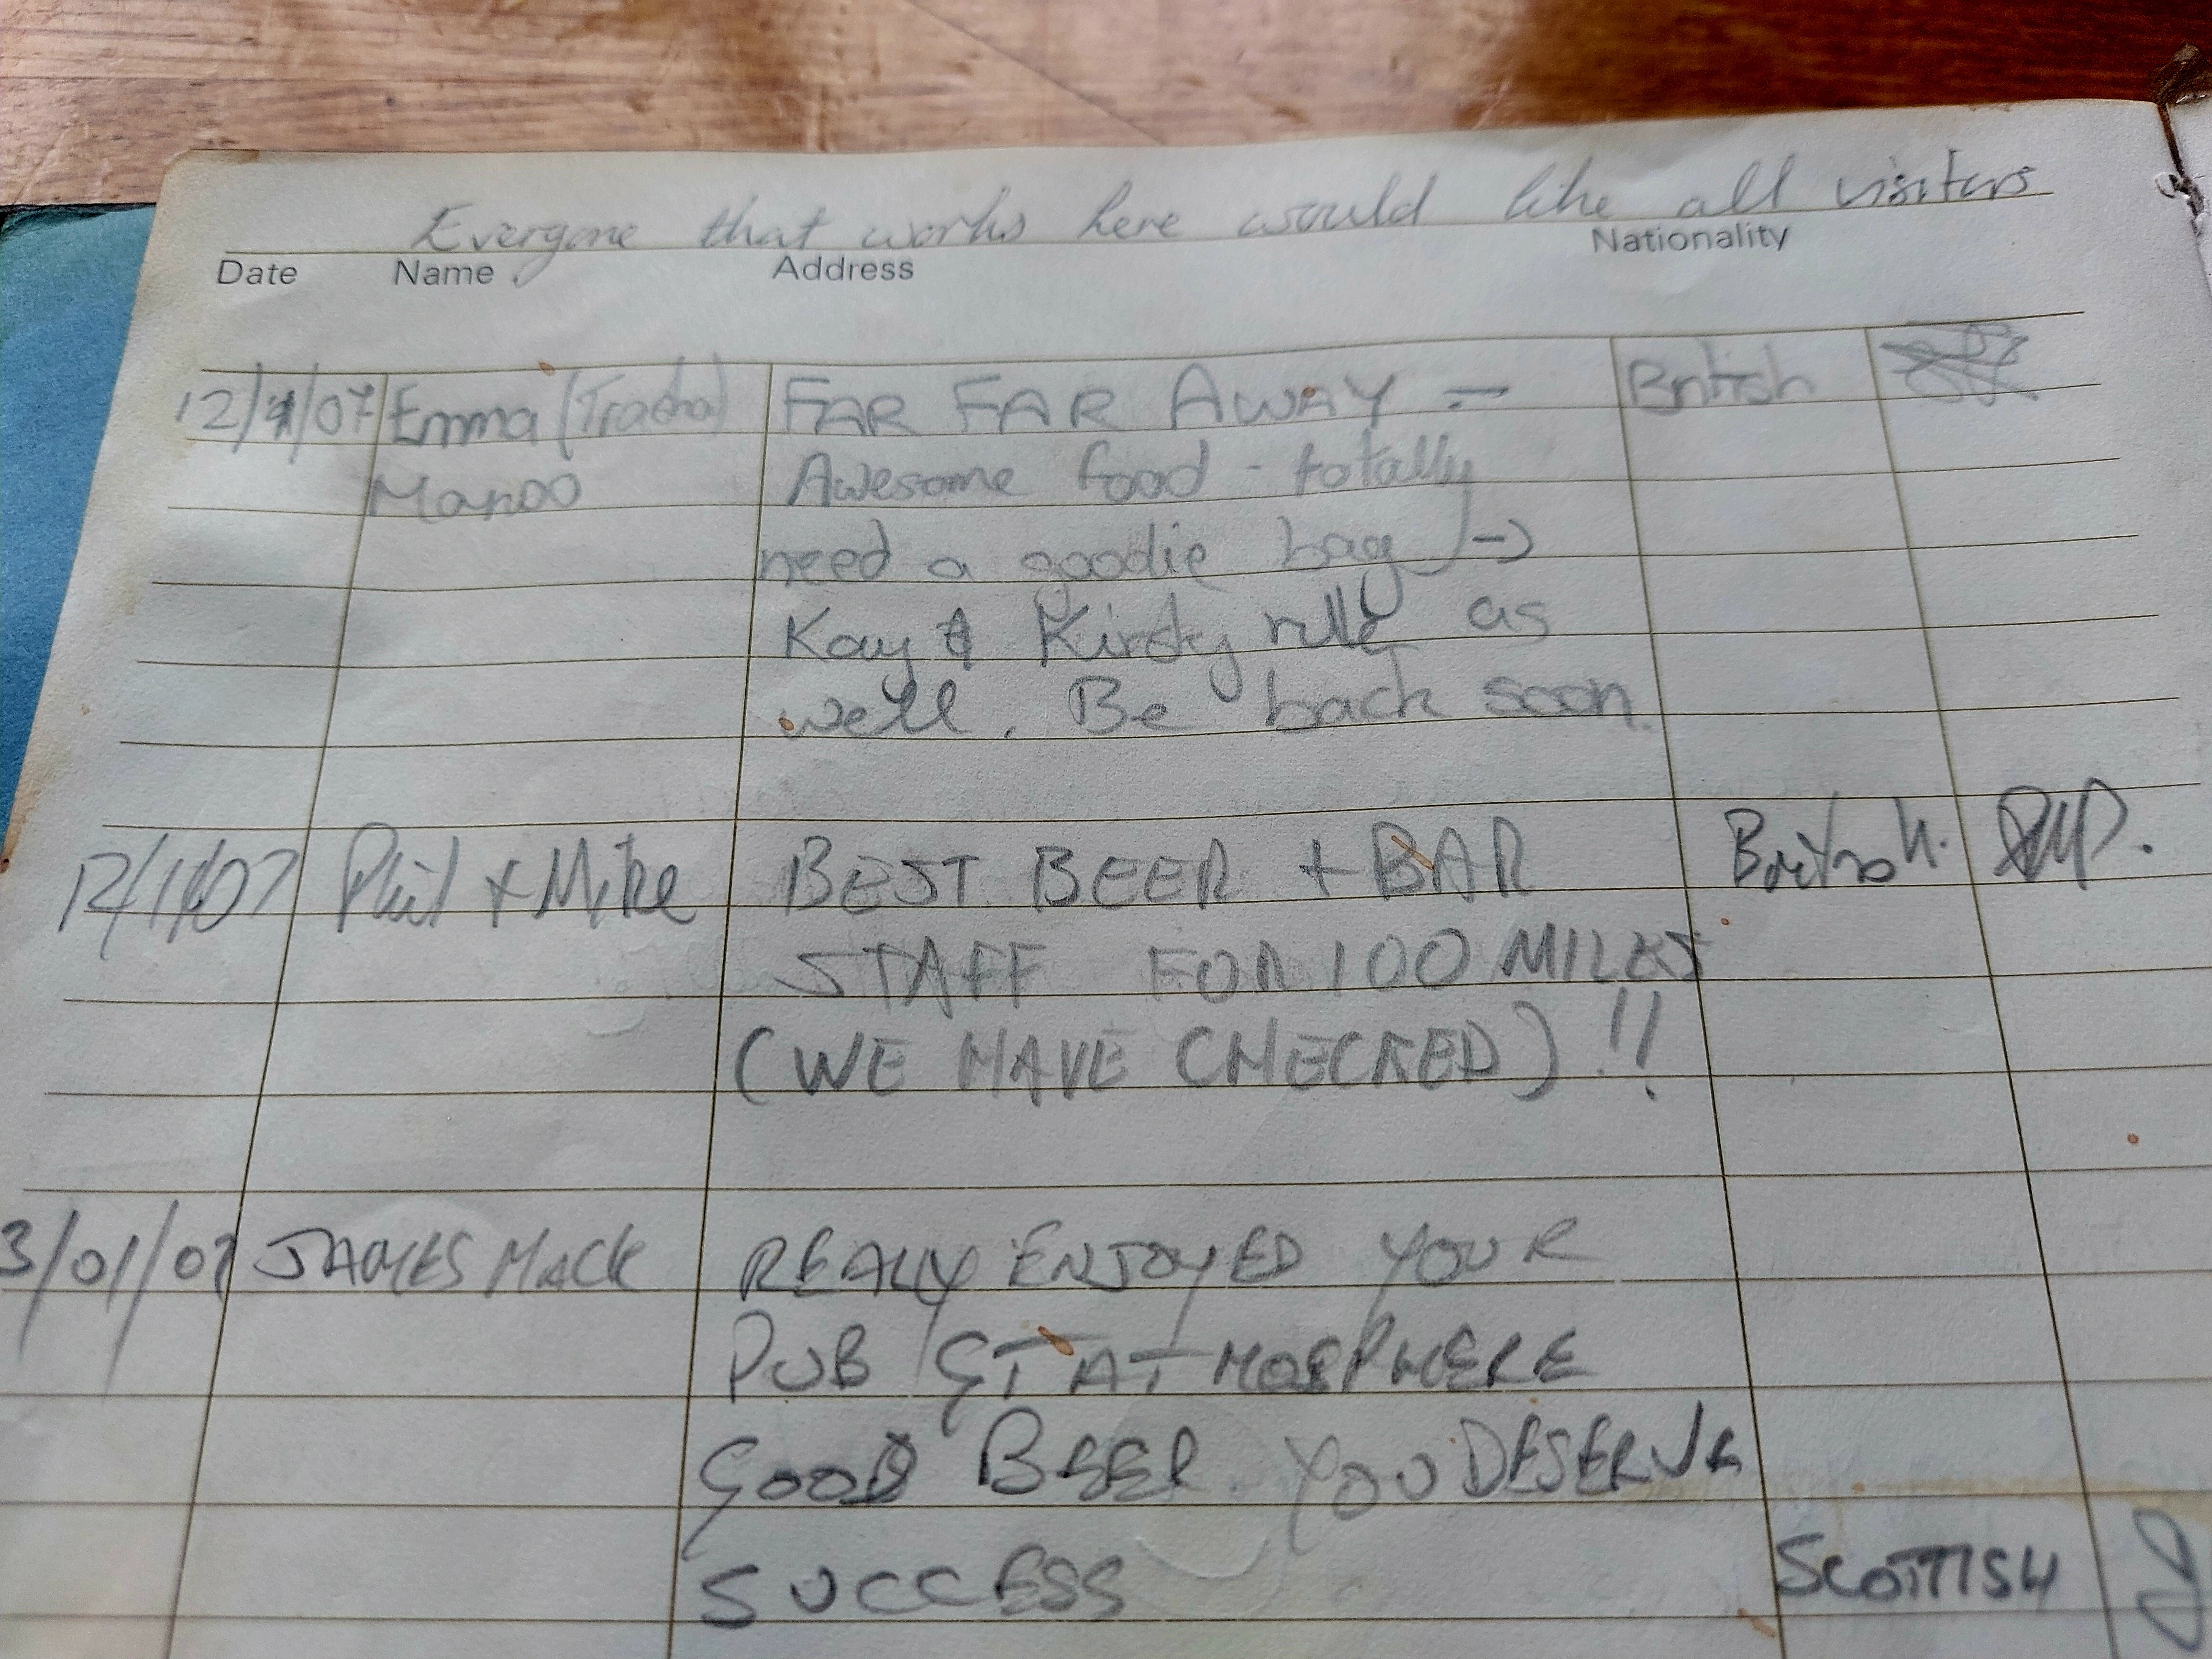 Everyone that works here would like all visitors
Date Name Address Nationality
12/1/07 Emma FAR FAR AWAY - British
Awesome food - totally
need a goodie bag →
Kay & Kirsty rule as
well. Be back soon.
12/1/07 Phil + Mike BEST BEER + BAR British.
STAFF FOR 100 MILES
(WE HAVE CHECKED)!!
3/01/07 JAMES MACK REALLY ENJOYED YOUR
PUB GT ATMOSPHERE
GOOD BEER. YOU DESERVE
SUCCESS SCOTTISH